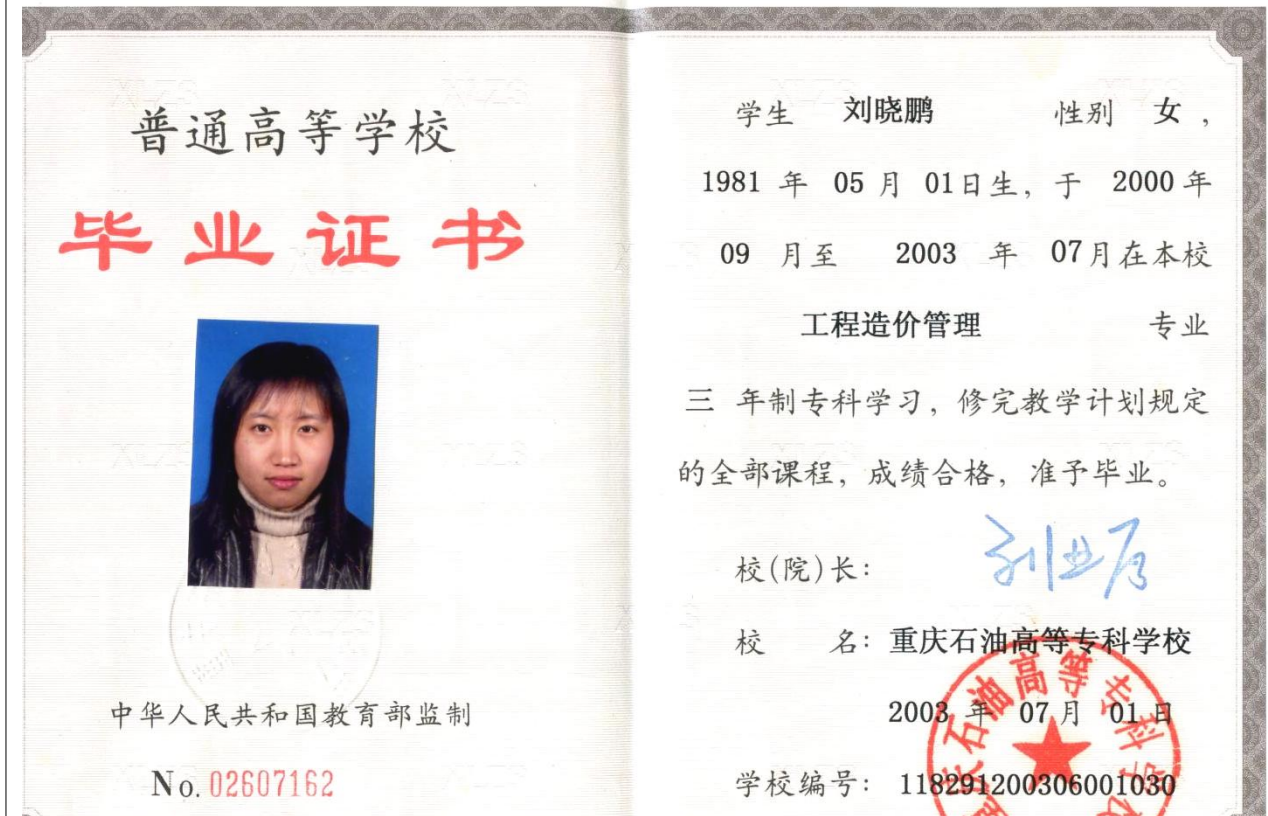 普通高等学校
毕业证书
中华人民共和国教育部监制
No. 02607162
学生 刘晓鹏 性别 女,
1981 年 05 月 01日生, 于 2000 年
09 月至 2003 年 07月在本校
工程造价管理 专业
三 年制专科学习, 修完教学计划规定
的全部课程, 成绩合格, 准予毕业。
校(院)长:
校 名: 重庆石油高等专科学校
2003 年 07月 01日
学校编号: 118291200306001030
石油高等专科学校